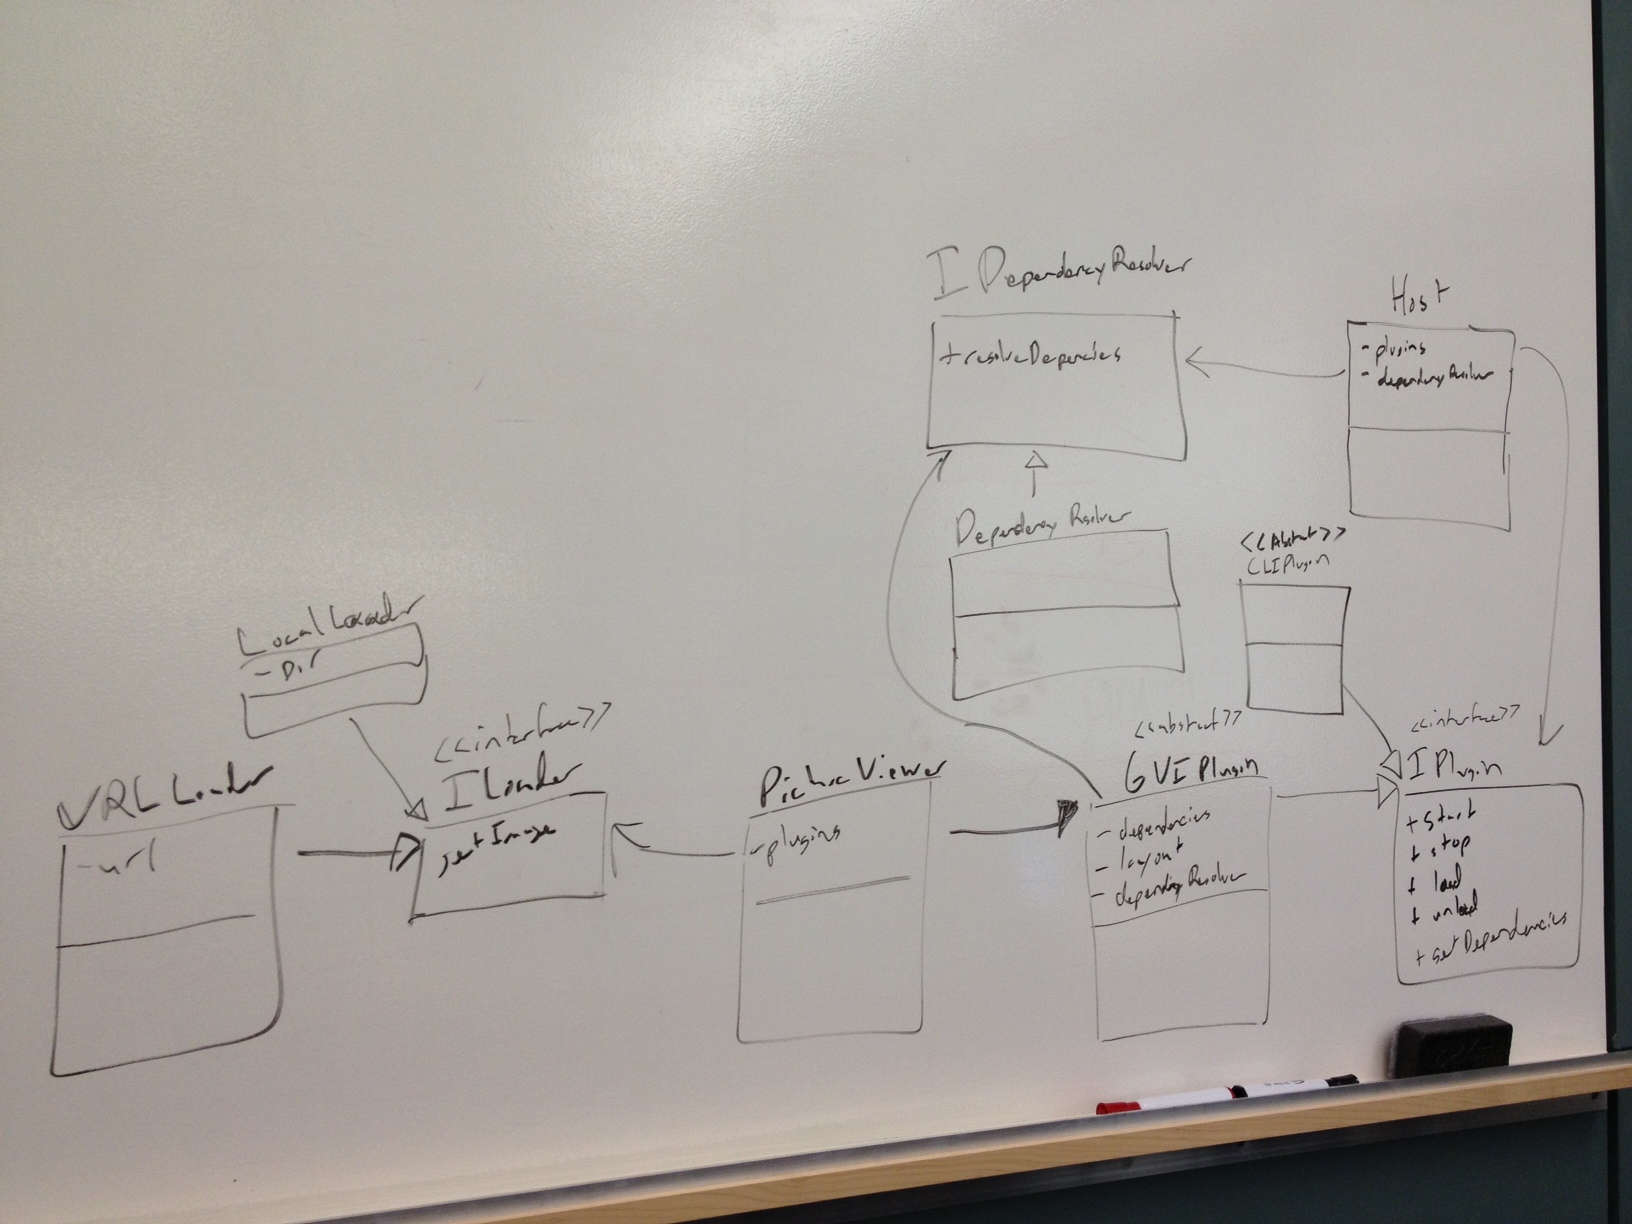 IDependencyResolver
+resolveDepencies
Host
- plugins
- dependencyResolver
Dependency Resolver
<<Abstract>>
CLIPlugin
LocalLoader
- Dir
<<interface>>
ILoader
getImage
URLLoader
-url
PictureViewer
-plugins
<<abstract>>
GUIPlugin
- dependencies
- layout
- dependencyResolver
<<interface>>
IPlugin
+ start
+ stop
+ load
+ unload
+ getDependencies